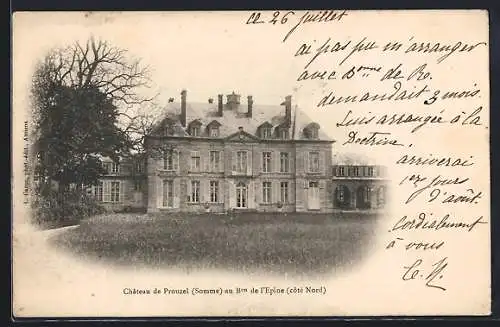 ce 26 juillet
ai pas pu m'arranger
avec Bonne de Ro.
demandait 3 mois.
Suis arrangée à la
Doctrine.
arriverai
1ers jours
d'août.
Cordialement
à vous
C. H.
Château de Prouzel (Somme) au Bon de l'Epine (côté Nord)
phot.-édit. Amiens